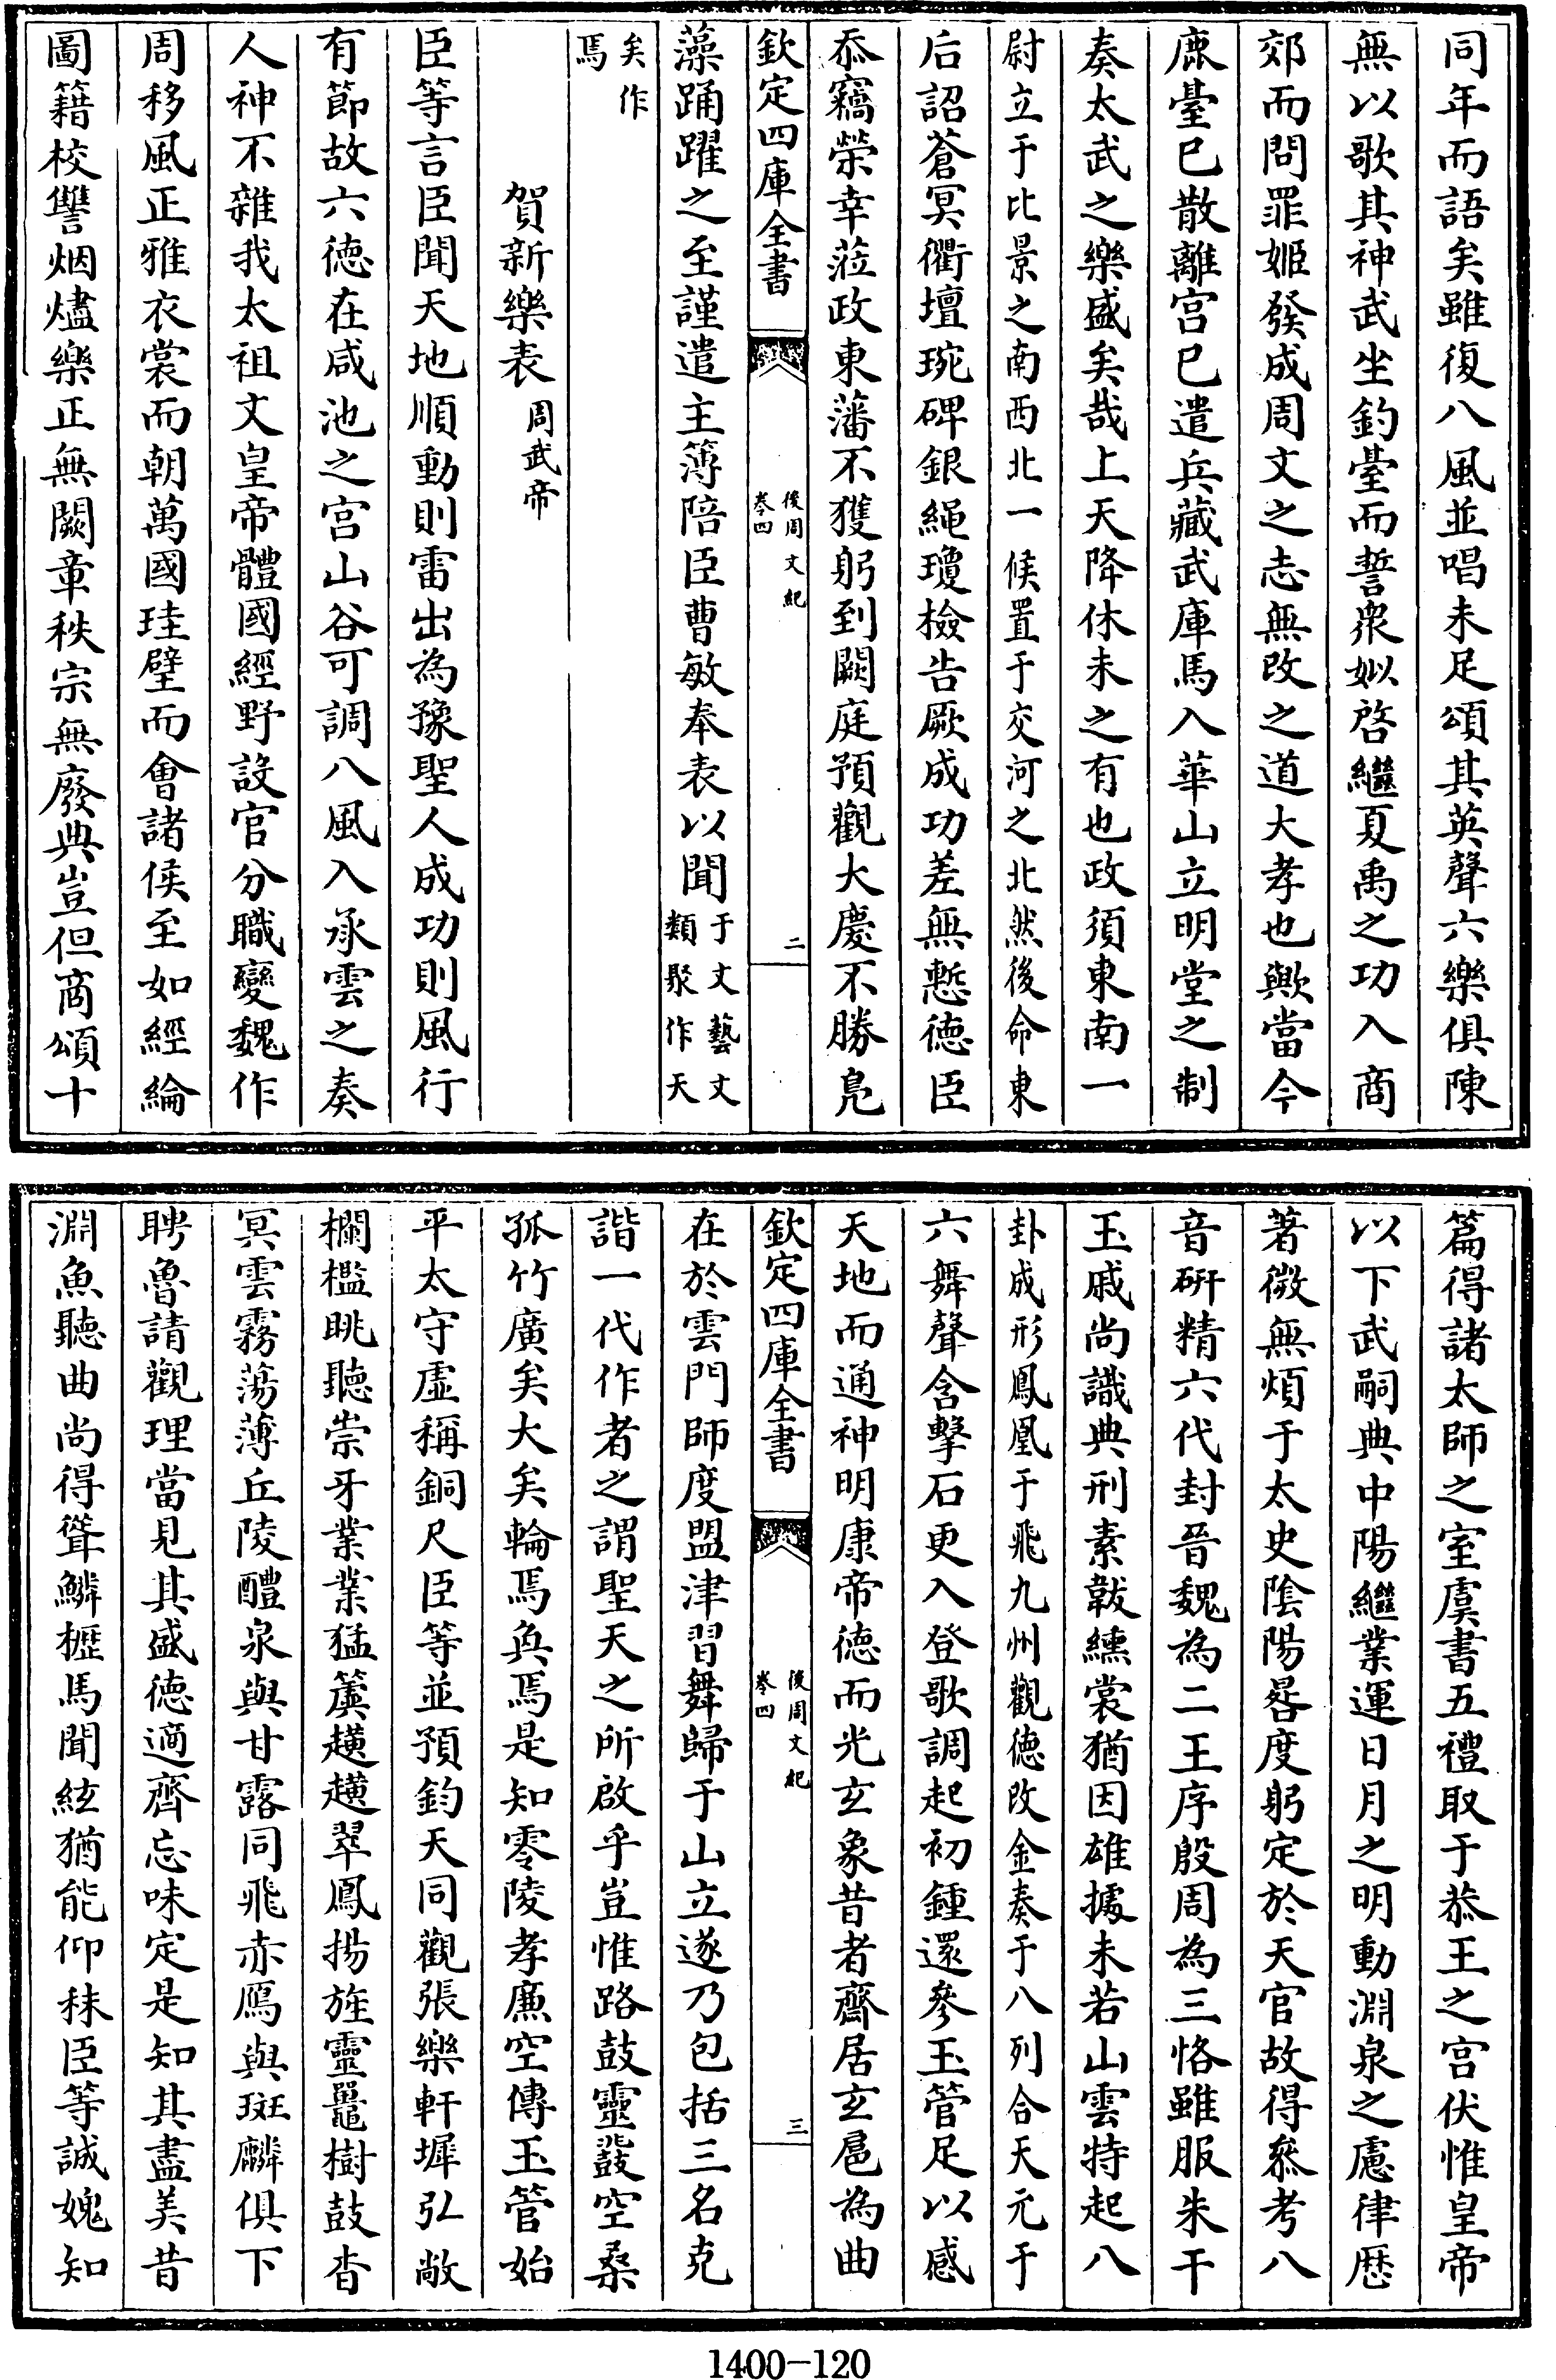 同年而語矣雖復八風並唱未足頌其英聲六樂俱陳
無以歌其神武坐釣臺而誓衆姒啓繼夏禹之功入商
郊而問罪姬發成周文之志無改之道大孝也歟當今
鹿臺已散離宫已遣兵藏武庫馬入華山立明堂之制
奏太武之樂盛矣哉上天降休未之有也政須東南一
尉立于比景之南西北一候置于交河之北然後命東
后詔蒼冥衢壇琬碑銀繩瓊檢告厥成功差無慙德臣
忝竊榮幸蒞政東藩不獲躬到闕庭預觀大慶不勝鳧
欽定四庫全書
後周文紀
卷四
二
藻踊躍之至謹遣主簿陪臣曹敏奉表以聞于文藝文類聚作天
矣作
焉
賀新樂表周武帝
臣等言臣聞天地順動則雷出為豫聖人成功則風行
有節故六德在咸池之宫山谷可調八風入承雲之奏
人神不雜我太祖文皇帝體國經野設官分職變魏作
周移風正雅衣裳而朝萬國珪璧而會諸侯至如經綸
圖籍校讐烟燼樂正無闕章秩宗無廢典豈但商頌十
篇得諸太師之室虞書五禮取于恭王之宫伏惟皇帝
以下武嗣典中陽繼業運日月之明動淵泉之慮律厯
著微無煩于太史陰陽晷度躬定於天官故得叅考八
音硏精六代封晉魏為二王序殷周為三恪雖服朱干
玉戚尚識典刑素韍纁裳猶因雄據未若山雲特起八
卦成形鳳凰于飛九州觀德改金奏于八列合天元于
六舞聲含擊石更入登歌調起初鍾還參玉管足以感
天地而通神明康帝德而光玄象昔者齊居玄扈為曲
欽定四庫全書
後周文紀
卷四
三
在於雲門師度盟津習舞歸于山立遂乃包括三名克
諧一代作者之謂聖天之所啟乎豈惟路鼓靈鼗空桑
孤竹廣矣大矣輪焉奐焉是知零陵孝廉空傳玉管始
平太守虛稱銅尺臣等並預鈞天同觀張樂軒墀弘敞
欄檻眺聽崇牙業業猛簴趪趪翠鳳揚旌靈鼉樹鼓杳
冥雲霧蕩薄丘陵醴泉與甘露同飛赤鴈與斑麟俱下
聘魯請觀理當見其盛德適齊忘味定是知其盡美昔
淵魚聽曲尚得聳鱗櫪馬聞絃猶能仰秣臣等誠媿知
1400-120